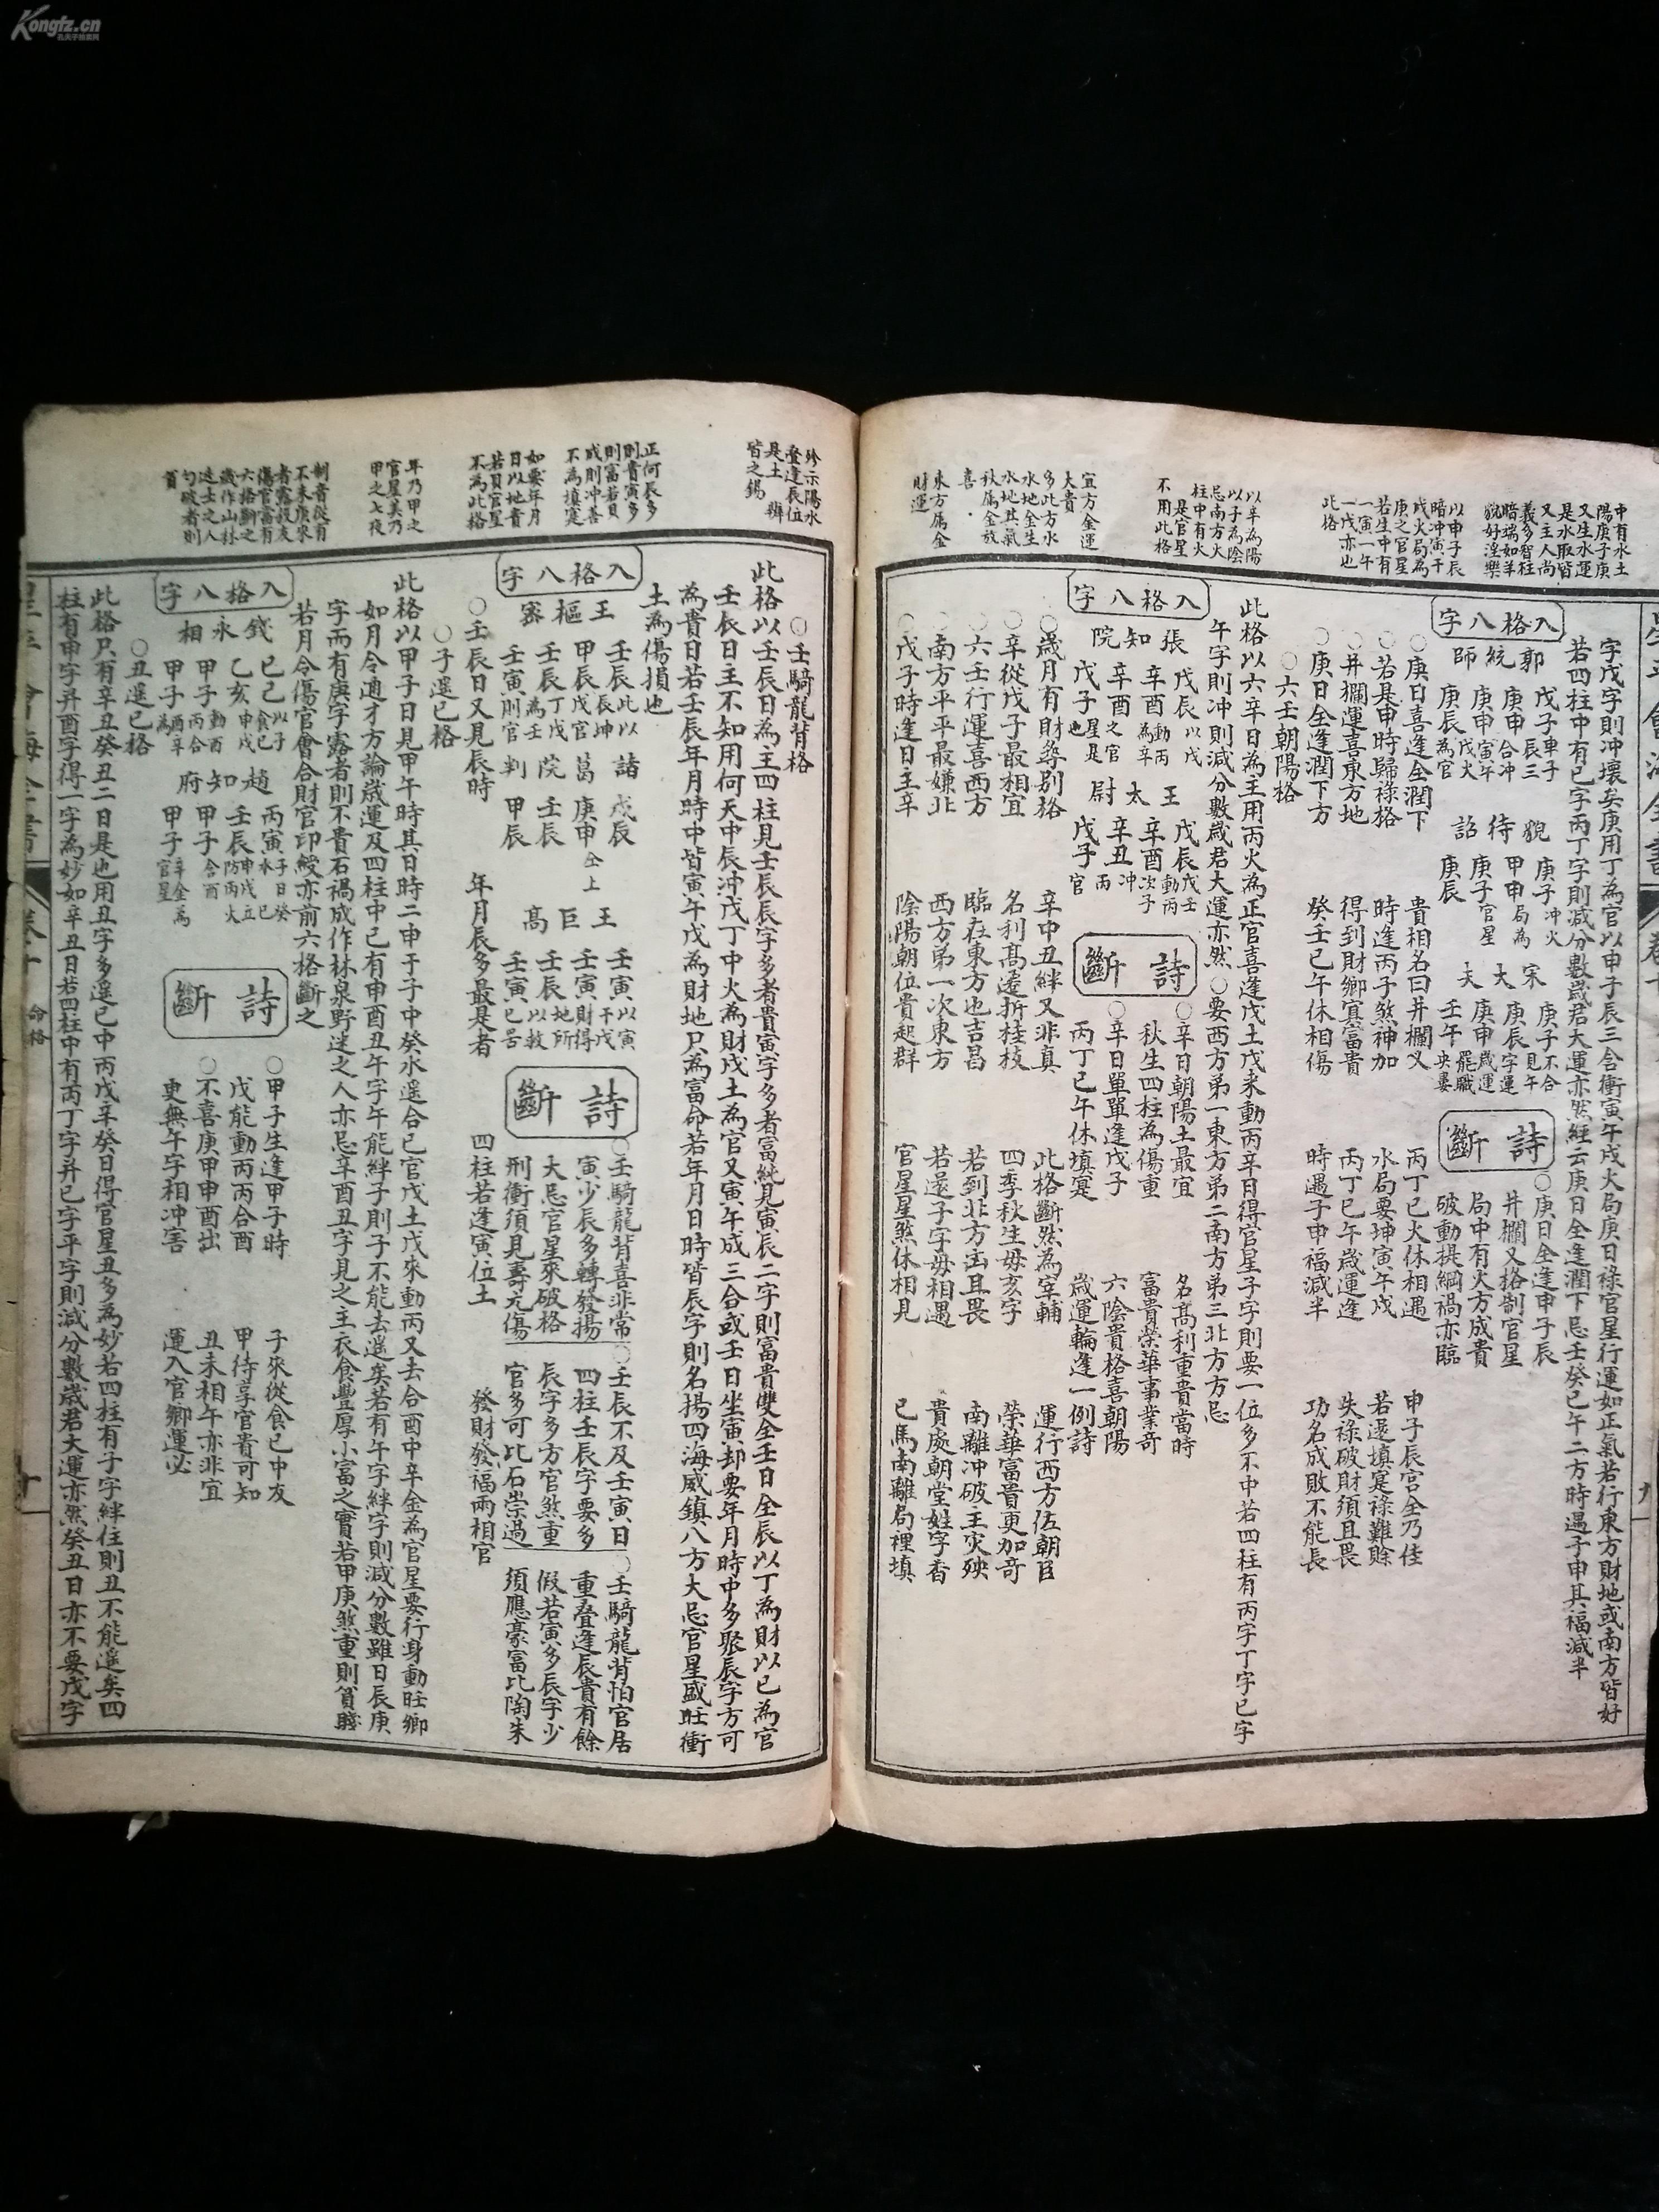 Kongfz.cn
中有水土
陽庚子庚
又生水運
是水取皆
又主人尚
義多智柱
暗端如羊
貌好淫樂
以申子辰
暗冲寅午
戌火局為
庚之官星
若生中有
一寅一午
一戌亦也
此格
以辛為陽
以子為陰
忌南方火
柱中有火
是官星
不用此格
宜方金運
大貴
多此方水
水地金生
水地其氣
秋属金故
喜
東方属金
財運
字戊字則冲壞矣庚用丁為官以申子辰三合衝寅午戌火局庚日祿官星行運如正氣若行東方財地或南方皆好
若四柱中有巳字丙丁字則減分數歲君大運亦然經云庚日全逢潤下忌壬癸巳午二方時遇子申其福減半
入格八字
郭統師
戊子車子
庚申辰三
庚申合冲
庚辰寅午
戌火
為官
貌待詔
庚子冲火
甲申局為
庚子官星
庚辰
宋大夫
庚子不合
庚辰見午
庚申字運
壬午歲運
罷職
央婁
詩斷
○庚日全逢申子辰
井欄叉格制官星
局中有火方成貴
破動提綱禍亦臨
○庚日喜逢全潤下
貴相名曰井欄叉
丙丁巳火休相遇
申子辰宮全乃佳
○若是申時歸祿格
時逢丙子煞神加
水局要坤寅午戌
若還填寔祿難賒
○井欄運喜東方地
得到財鄉寔富貴
丙丁巳午歲運逢
失祿破財須且畏
○庚日全逢潤下方
癸壬巳午休相傷
時遇子申福減半
功名成敗不能長
○六壬朝陽格
此格以六辛日為主用丙火為正官喜逢戊土戊來動丙辛日得官星子字則要一位多不中若四柱有丙字丁字巳字
午字則冲則減分數歲君大運亦然○要西方弟一東方弟二南方弟三北方方忌
入格八字
張知院
戊辰以戊
辛酉動丙
辛酉為辛
戊子之官
星是
也
王太尉
戊辰戊壬
辛酉動丙
辛丑次子
戊子冲
丙
官
詩斷
○辛日朝陽土最宜
名高利重貴當時
秋生四柱為傷重
富貴榮華事業奇
○辛日單單逢戊子
六陰貴格喜朝陽
丙丁巳午休填寔
歲運輪逢一例詩
○歲月有財尋別格
辛中丑絆又非真
此格斷然為宰輔
運行西方佐朝臣
○辛從戊子最相宜
名利高遷折桂枝
四季秋生毋亥字
榮華富貴更加奇
○六壬行運喜西方
臨在東方也吉昌
若到北方凶且畏
南離冲破主灾殃
○南方平平最嫌北
西方弟一次東方
若還子字毋相遇
貴處朝堂姓字香
○戊子時逢日主辛
陰陽朝位貴起群
官星星煞休相見
巳馬南離局裡填
如示陽水
登逢辰位
是土
皆之錫
正何辰多
則貴寅多
則富若貝
成則冲吾
不為填寔
如要年月
日以地貴
若貝官星
不為此格
年乃甲之
官星美乃
甲之七夜
制貴從有
不來庚來
者露殺友
傷官富有
六格斷之
歲作山林
迭士之人
勾破者則
貧
○壬騎龍背格
此格以壬辰日為主四柱見壬辰辰字多者貴寅字多者富純見寅辰二字則富貴雙全壬日全辰以丁為財以已為官
壬辰日主不知用何天中辰冲戊丁中火為財戌土為官又寅午成三合或壬日坐寅却要年月時中多聚辰字方可
為貴日若壬辰年月時中皆寅午戊為財地只為富命若年月日時皆辰字則名揚四海威鎮八方大忌官星盛旺衝
土為傷損也
入格八字
王樞密
壬辰此以
甲辰辰坤
壬辰戊官
壬寅丁戊
為壬
則官
諸葛院判
戊辰
庚申仝上
壬辰
甲辰
王巨高
壬寅以寅
壬寅午戊
壬辰則得
壬寅地所
以救
已苦
詩斷
○壬騎龍背喜非常
寅少辰多轉發揚
大忌官星來破格
刑衝須見壽元傷
○壬辰不及壬寅日
四柱壬辰字要多
辰字多方官煞重
官多可比石崇過
○壬騎龍背怕官居
重叠逢辰貴有餘
假若寅多辰字少
須應豪富比陶朱
○壬辰日又見辰時
年月辰多最是者
四柱若逢寅位土
發財發福兩相官
○子遥巳格
此格以甲子日見甲午時其日時二申于子中癸水遥合巳官戊土戊來動丙又去合酉中辛金為官星要行身動旺鄉
如月令通才方論歲運及四柱中己有申酉丑午字午能絆子則子不能去遥矣若有午字絆字則減分數雖日辰庚
字而有庚字露者則不貴石禍成作林泉野迷之人亦忌辛酉丑字見之主衣食豐厚小富之實若甲庚煞重則貧賤
若月令傷官會合財官印綬亦前六格斷之
入格八字
錢永相
己巳以子
乙亥食巳
甲子申戊
甲子動酉
丙合
酉辛
為
趙知府
丙寅子日癸
壬辰水巳
甲子申戊立
甲子防丙火
合酉
辛金為
官星
詩斷
○甲子生逢甲子時
子來從食巳中友
戊能動丙丙合酉
甲待享官貴可知
○不喜庚甲申酉出
丑未相午亦非宜
更無午字相冲害
運入官鄉運必
○丑遥巳格
此格只有辛丑癸丑二日是也用丑字多遥巳中丙戊辛癸日得官星丑多為妙若四柱有子字絆住則丑不能遥矣四
柱有申字并酉字得一字為妙如辛丑日若四柱中有丙丁字并巳字平字則減分數歲君大運亦然癸丑日亦不要戊字
星平會海全書
命格